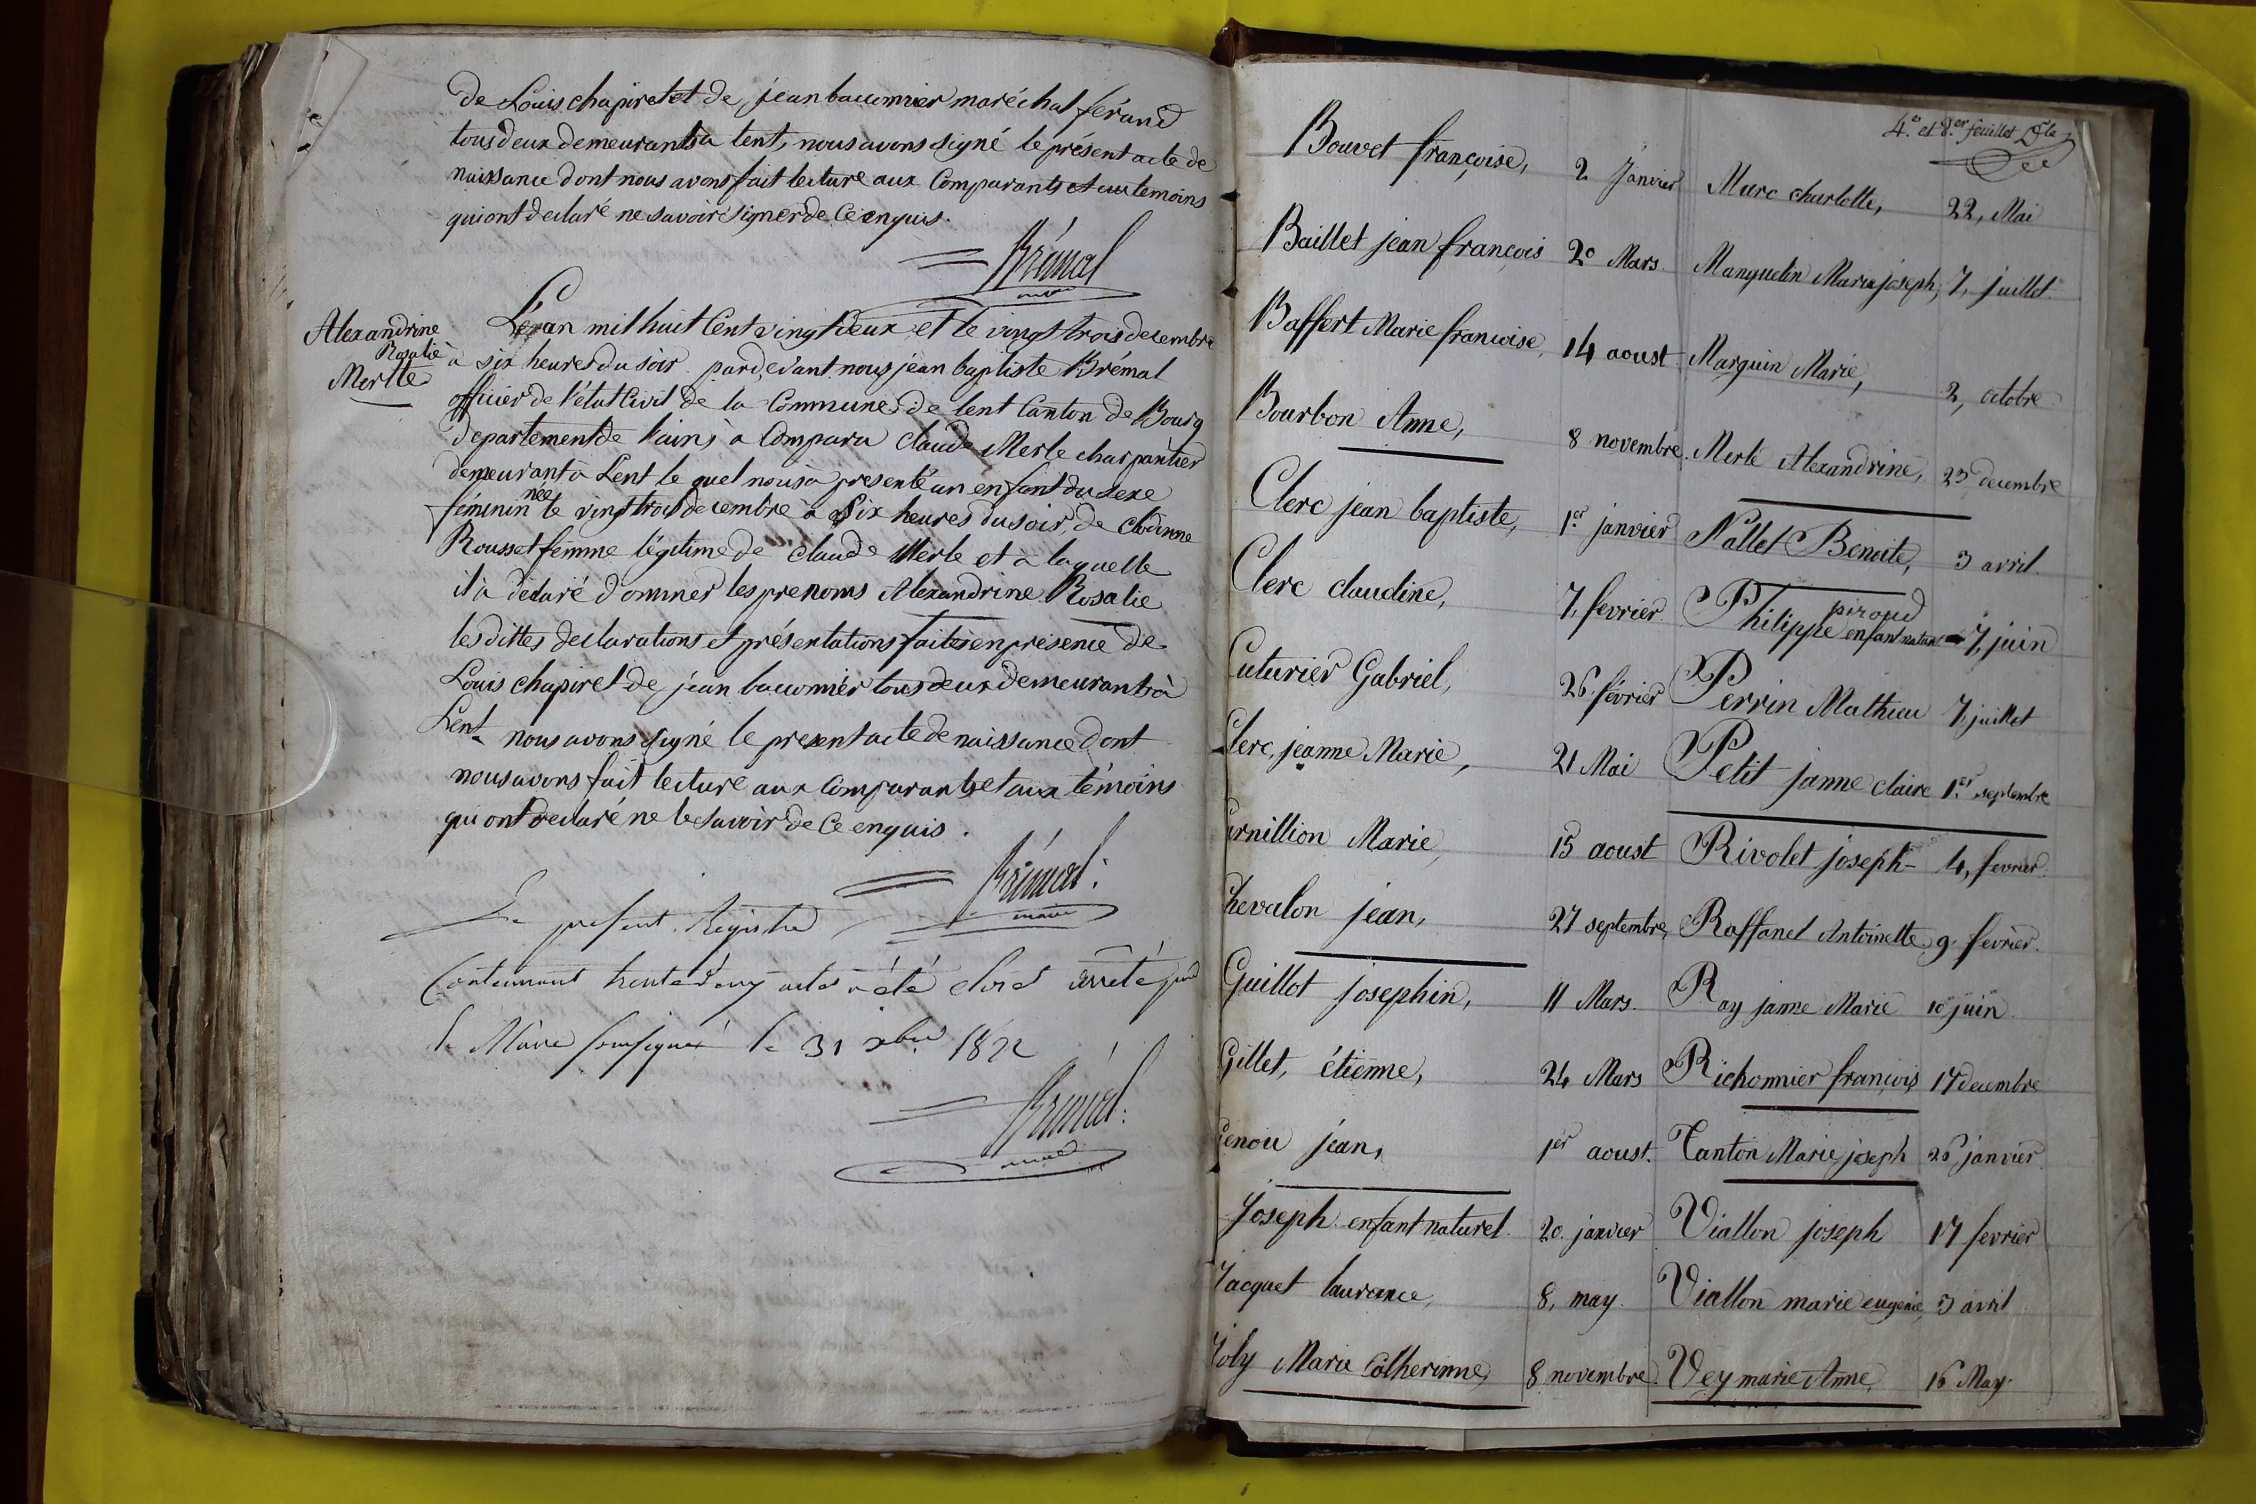 de Louis chapiret et de jean bacconnier maréchal férand
tous deux demeurants à lent, nous avons signé le présent acte de
naissance dont nous avons fait lecture aux Comparants et aux temoins
qui ont declaré ne savoir signer de ce enquis.
Brémal
maire
Alexandrine
Rosalie
Merlle
L'an mil huit Cent vingt deux et le vingt trois decembre
à six heures du soir pardevant nous jean baptiste Brémal
officier de l'état Civil de la Commune de lent Canton de Bourg
departement de l'ain, à Comparu claude Merle charpantier
demeurant à Lent le quel nous à presenté un enfant du sexe
féminin née le vingt trois decembre à Six heures du soir, de
Rousset femme légitime de claude Merle et à laquelle
il à déclaré donner les prenoms Alexandrine Rosalie
les dittes declarations et présentations faites en presence de
Louis chapiret de jean bacconnier tous deux demeurants à
Lent nous avons signé le present acte de naissance dont
nous avons fait lecture aux Comparants et aux témoins
qui ont declaré ne le savoir de Ce enquis.
Brémal
maire
Le present Registre
Contennant trente deux actes a été clos et arreté par
le Maire soussigné le 31 xbre 1822
Brémal
4.e et d.er feuillet
Bouvet françoise, 2 Janvier
Baillet jean françois 20 Mars
Baffert Marie francoise, 14 aoust
Bourbon Anne, 8 novembre
Clerc jean baptiste, 1.er janvier
Clerc claudine, 7, fevrier
Cuturier Gabriel, 26 février
Clerc, jeanne Marie, 21 Mai
urnillion Marie, 15 aoust
hevalon jean, 27 septembre
Guillot josephin, 11 Mars
Gillet, étienne, 24 Mars
Genou jean, 1er aoust
Joseph enfant naturel 20 janvier
Jacquet laurance, 8, may
Joly Marie Catherinne, 8 novembre
Murc charlotte, 22, Mai
Manguelin Marie joseph, 7, juillet
Marguin Marie, 2, octobre
Merle Alexandrine, 23 decembre
Nallet Benoite, 3 avril
piroud
Philippe enfant natur 7, juin
Perrin Mathieu 7, juillet
Petit janne claire 1.er septembre
Rivolet joseph 4, fevrier
Raffanel Antoinette 9 fevrier
Ray janne Marie 10 juin
Richonnier françois 17 decembre
Tanton Marie joseph 26 janvier
Viallon joseph 17 fevrier
Viallon marie eugenie, 3 avril
Vey marie Anne, 16 May